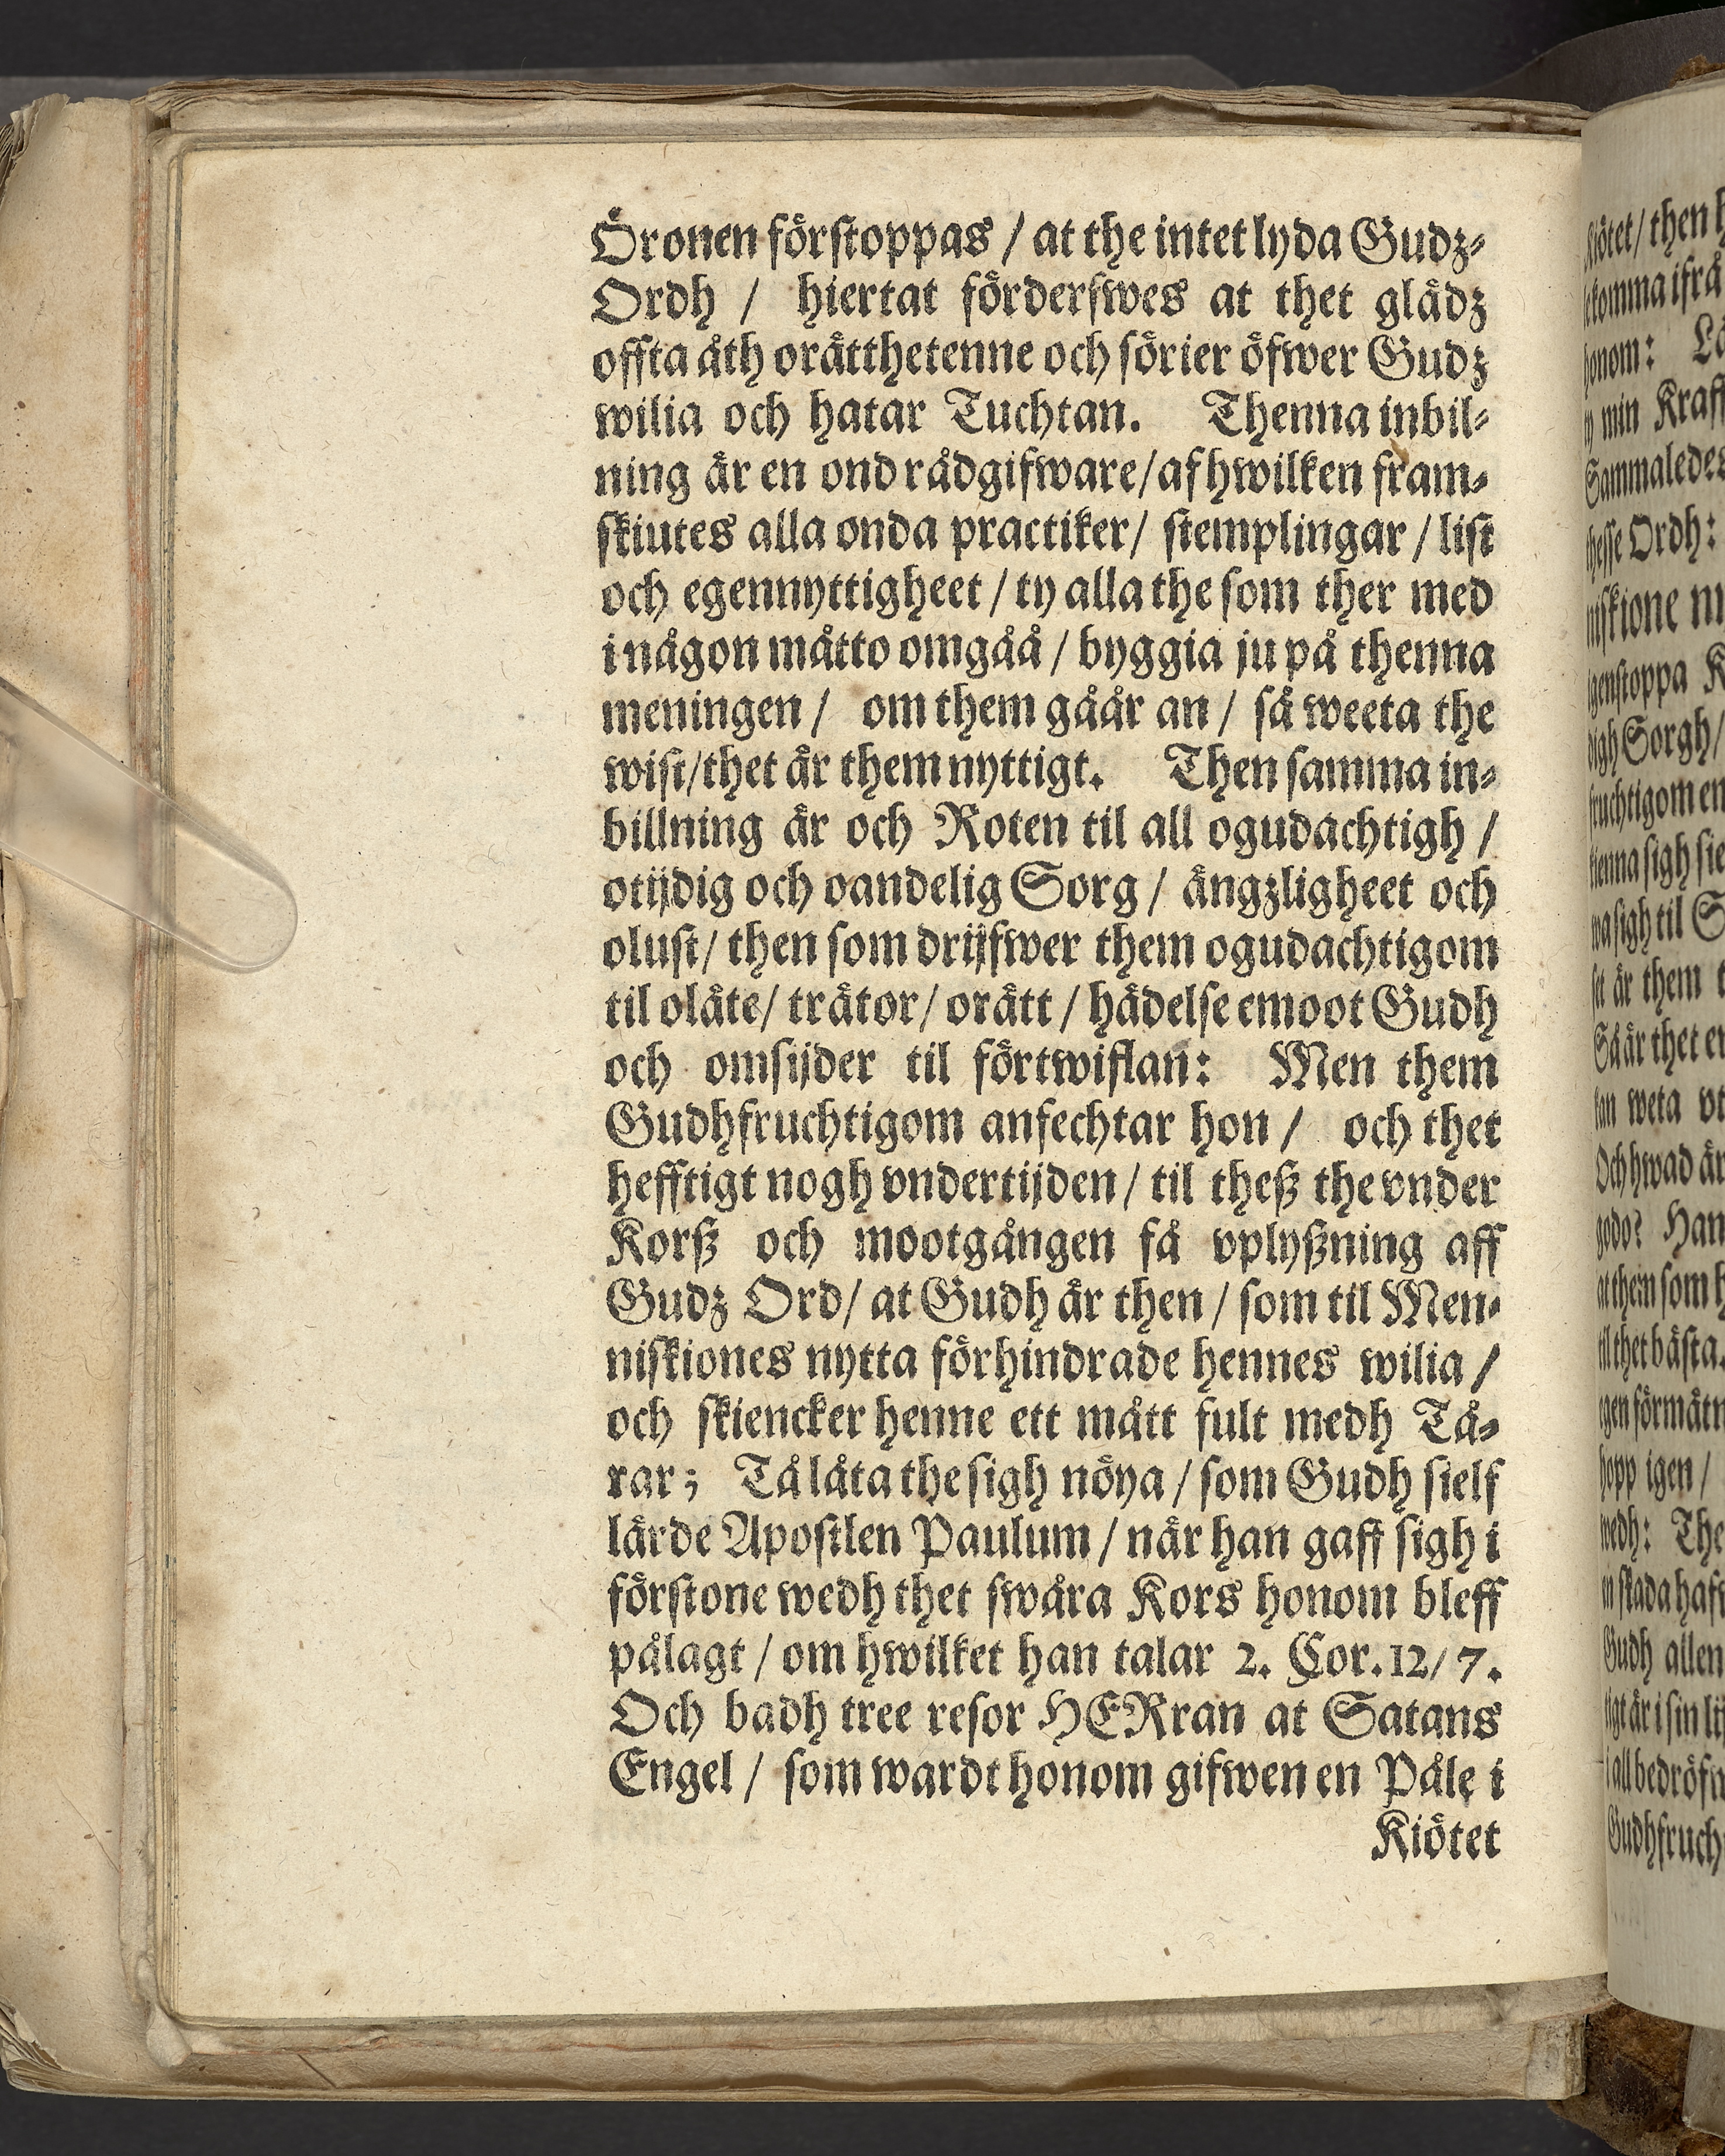 Öronen förstoppas / at the intet lyda Gudz-
Ordh / hiertat förderfwes at thet glädz
offta åth orätthetenne och sörier öfwer Gudz
wilia och hatar Tuchtan. Thenna inbil-
ning är en ond rådgifware/af hwilken fram-
skiutes alla onda practiker/ stemplingar / list
och egennyttigheet / ty alla the som ther med
i någon måtto omgåå / byggia ju på thenna
meningen / om them gåår an / så weeta the
wist/thet är them nyttigt. Then samma in-
billning är och Roten til all ogudachtigh /
otijdig och oandelig Sorg / ängzligheet och
olust/ then som drijfwer them ogudachtigom
til oläte/ trätor/ orätt / hädelse emoot Gudh
och omsijder til förtwiflan: Men them
Gudhfruchtigom anfechtar hon / och thet
hefftigt nogh vndertijden / til theß the vnder
Korß och mootgången få vplyßning aff
Gudz Ord/ at Gudh är then / som til Men-
niskiones nytta förhindrade hennes wilia /
och skiencker henne ett mått fult medh Tå-
rar; Tå låta the sigh nöya / som Gudh sielf
lärde Apostlen Paulum / när han gaff sigh i
förstone wedh thet swåra Kors honom bleff
pålagt / om hwilket han talar 2. Cor. 12/ 7.
Och badh tree resor HERran at Satans
Engel / som wardt honom gifwen en Påle i
Kiötet
Kiötet/ then
komma ifrå
honom:
min Kraft
Sammaledes
thesse Ordh:
igenstoppa
Sorgh/
sigh til
är them
Så är thet
kan weta
Och hwad är
godo? Han
at them som
til thet bästa.
hopp igen /
medh: The
skada
Gudh allen